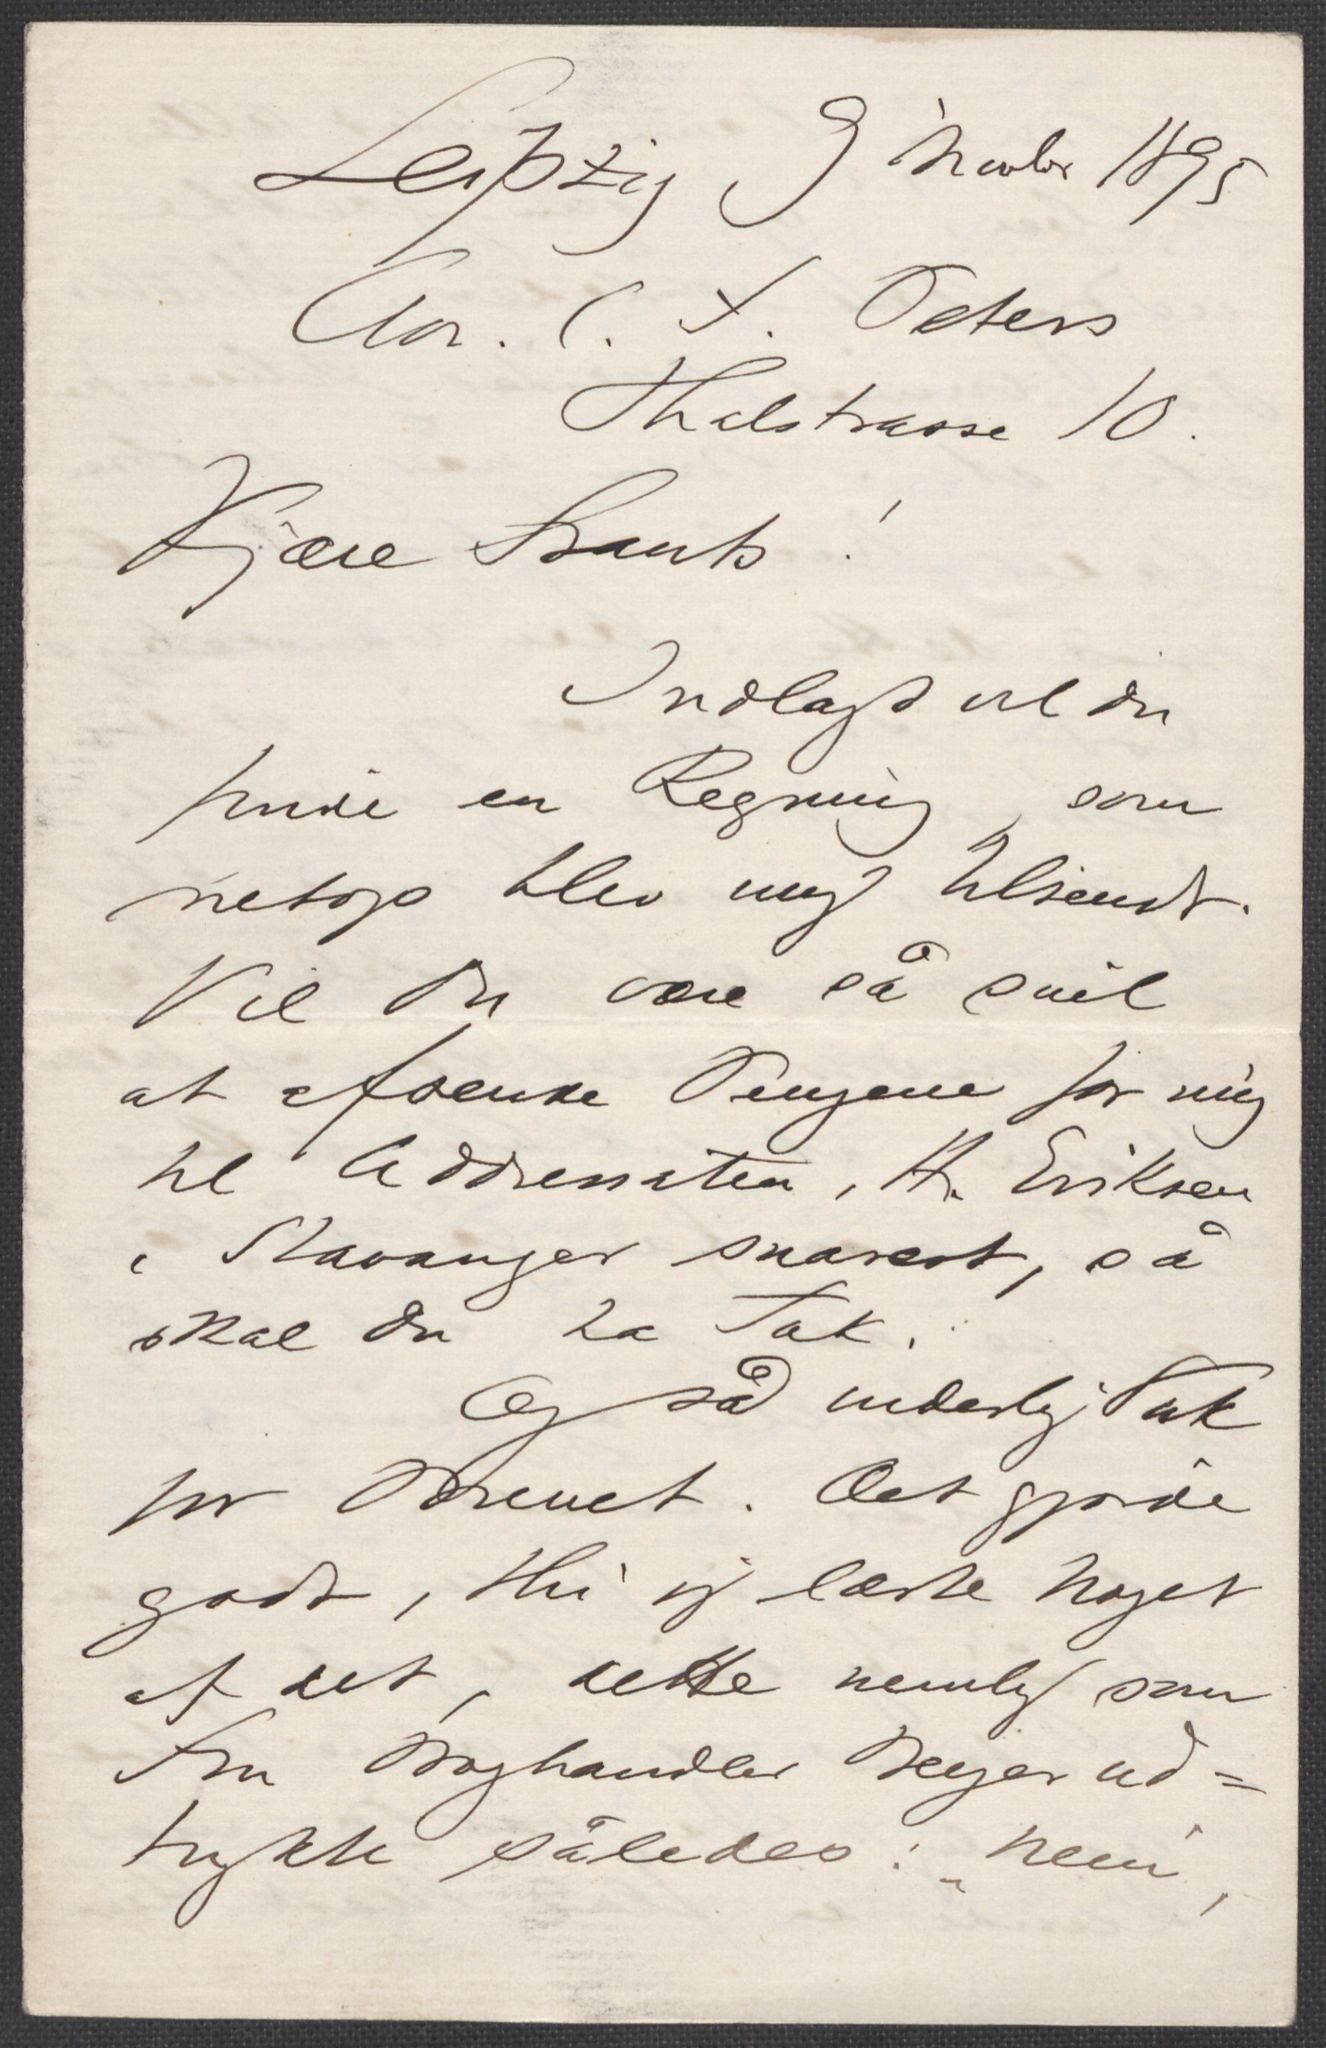 Leipzig 9 Novbr 1895
Adr. C. F. Peters
Thalstrasse 10.
Kjære Frants!
Indlagt vil du
finde en Regning, som
netop blev mig tilsendt.
Vil du være så snil
at afsende Pengene for mig
til Addressaten, H. Eriksen
i Stavanger snarest, så
skal du ha Tak.
Og så inderlig Tak
for Brevet. Det gjorde
godt, thi jeg læste noget
af det, dette nemlig som
Fru Boghandler Beyer ud=
trykte således: "Nei,